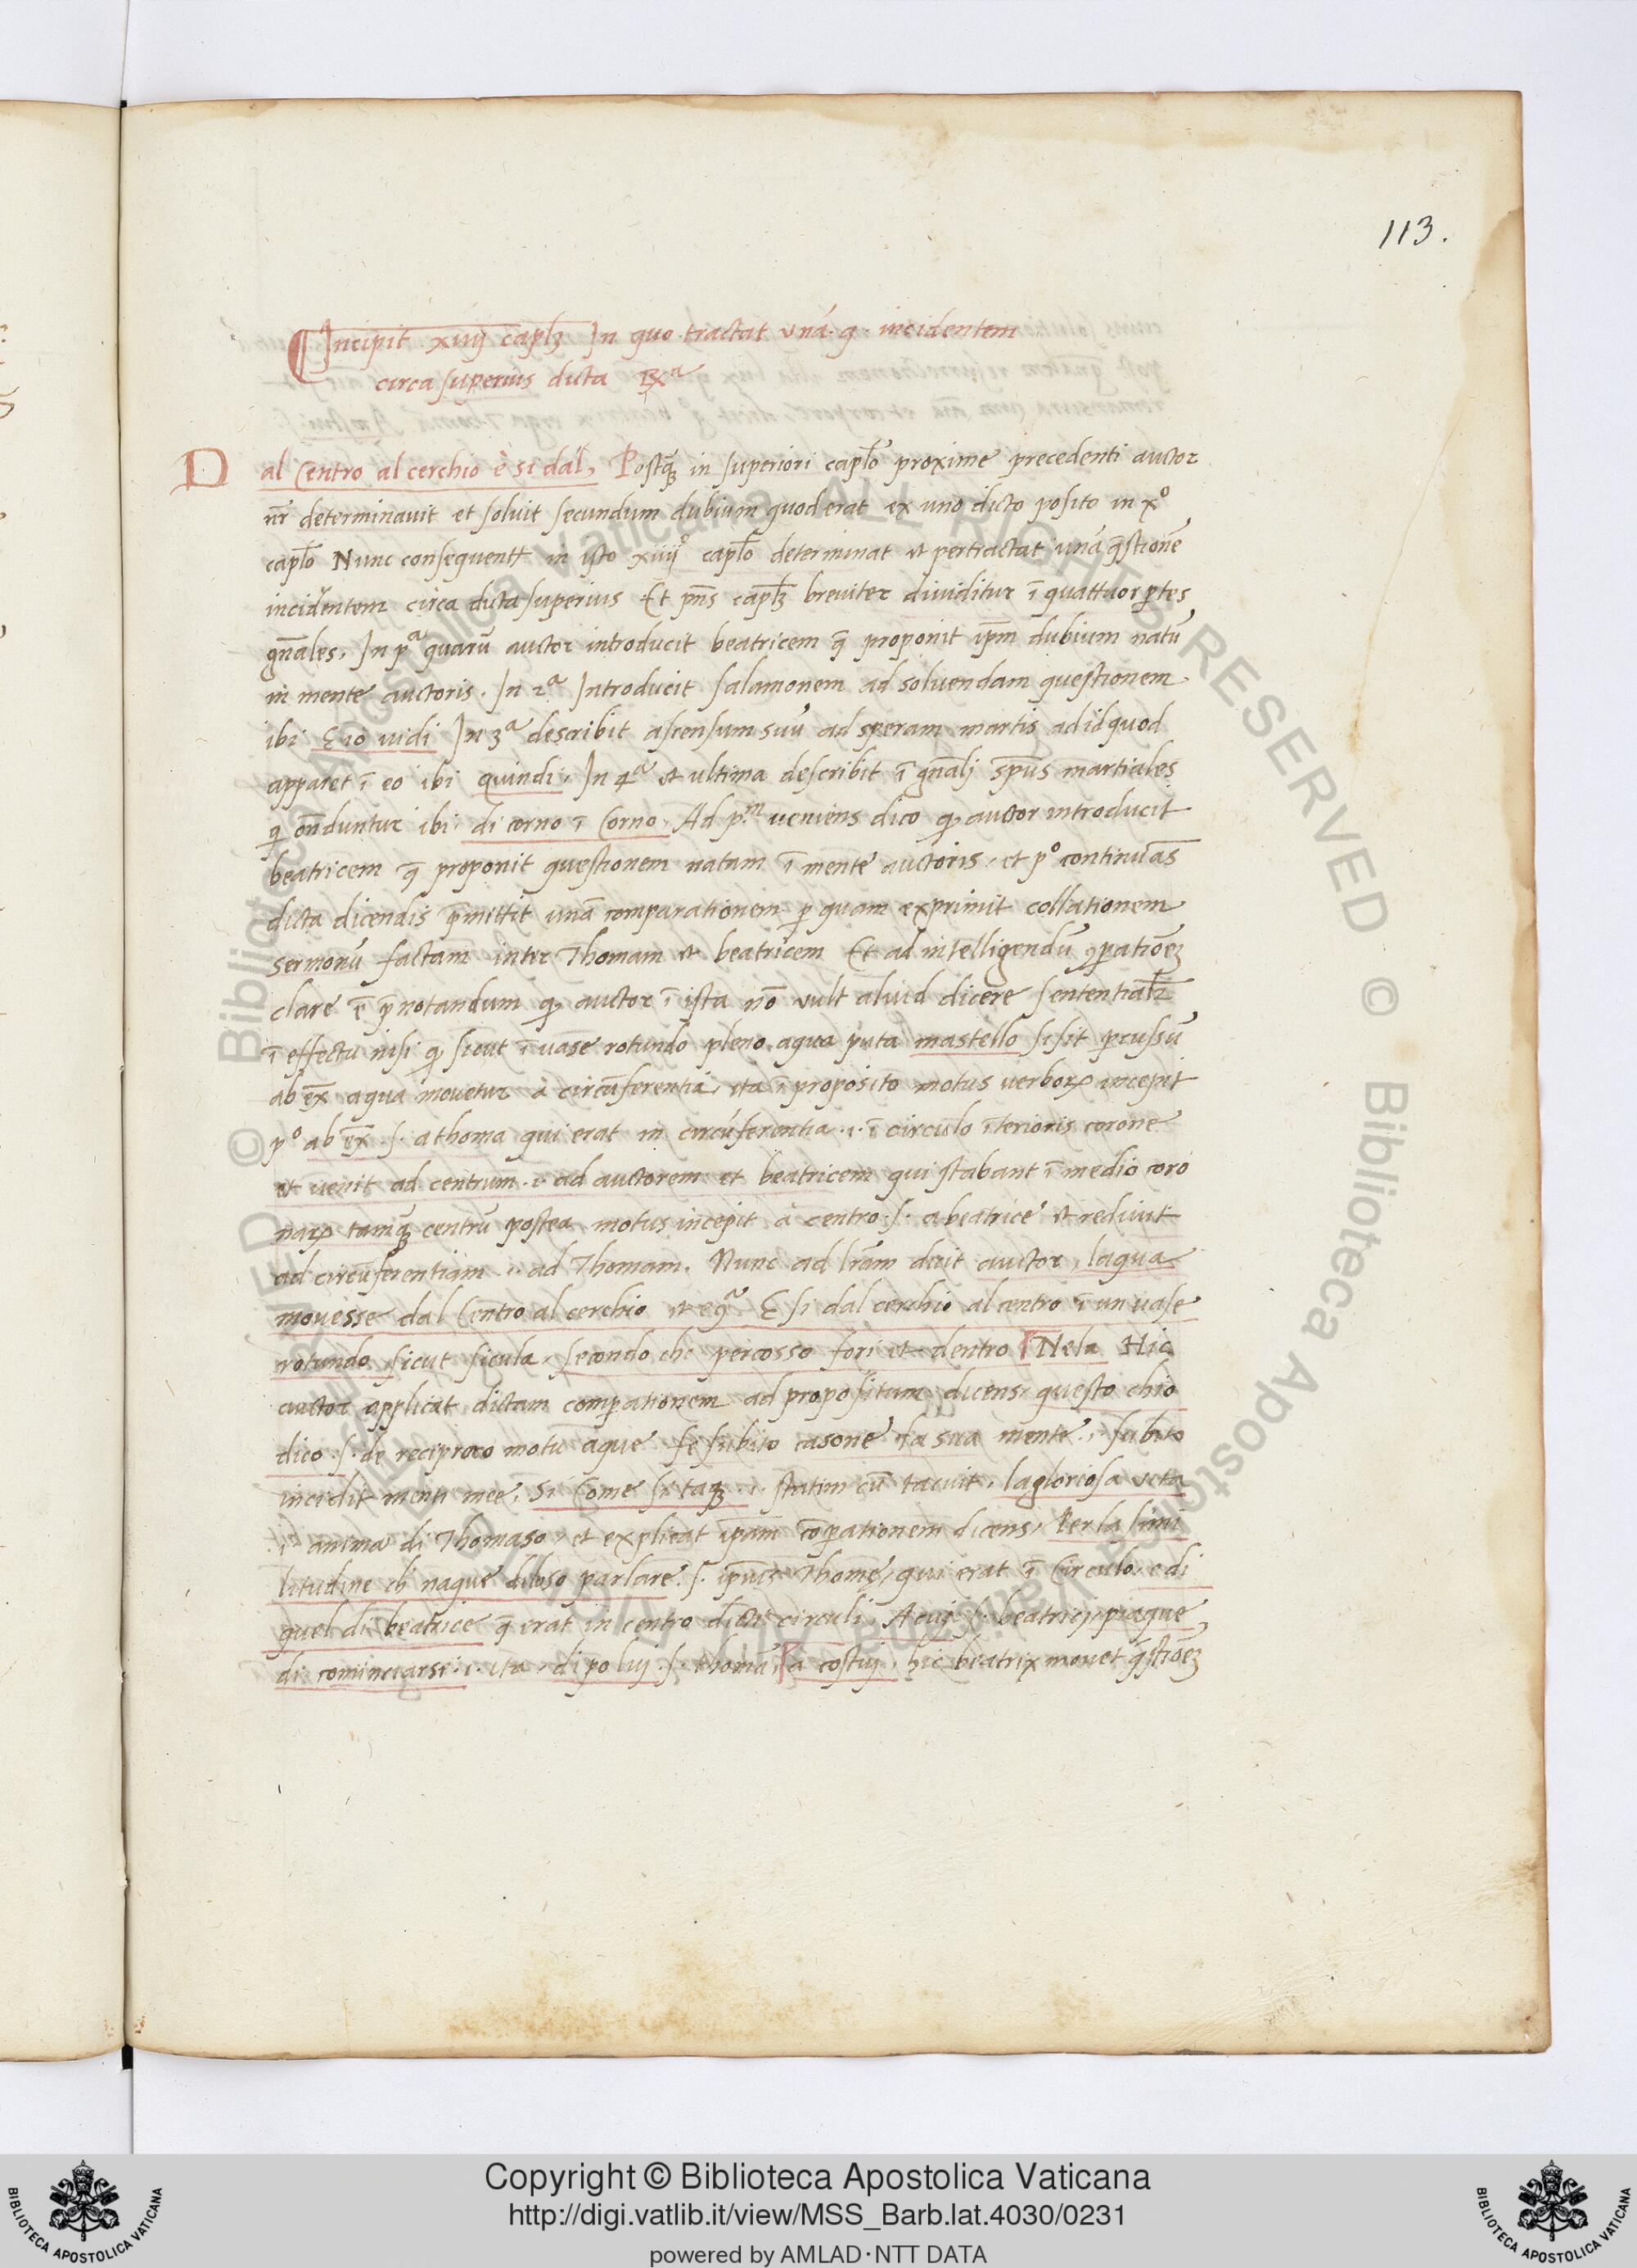 113.
Incipit xiiij caplȝ In quo tractat unā q. incidentem
circa superius dicta Rxª
Dal Centro al cerchio è si dal, Postq̄ȝ in superiori caplō proxime precedenti auctor
nr̄ determinavit et soluit secundum dubium quod erat ex uno dicto posito in xº
caplō Nunc consequent in isto xiiijº caplō determinat et pertractat unā q̄stionē
incidentem circa dicta superius Et pn̄s caplȝ breviter dividitur ī quattuor ꝑtes
gn̄ales. In pª quarū auctor introducit beatricem q̄ proponit ip̄m dubium natū
in mente auctoris. In 2ª Introducit salamonem ad solvendam questionem
ibi E io vidi In 3ª describit ascensum suū ad speram martis ad id quod
apparet ī eo ibi quindi. In 4ª et ultima describit ī gn̄alj sp̄us martiales
q on̄duntur ibi di corno ī Corno. Ad p.m veniens dico ꝙ auctor introducit
beatricem q̄ proponit questionem natam ī mente auctoris. et pº continuās
dicta dicendis p̄mittit unā comparationem ꝑ quam exprimit collationem
sermonū factam inter Thomam et beatricem Et ad intelligendū ꝯꝑatiōeȝ
clare ē p̄notandum ꝙ auctor ī ista nō vult aliud dicere sententialr̄
ī effectu nisi ꝙ sicut ī vase rotundo pleno aqua puta mastello si sit ꝑcussū
ab ex̄ aqua movetur a circūferentia, ita ī proposito motus verboꝝ incepit
pº ab ex̄ .s. a thoma qui erat in circūferentia .i. ī circulo īterioris corone
et venit ad centrum .i. ad auctorem et beatricem qui stabant ī medio coro
naꝝ tamq̄ȝ centrū postea motus incepit a centro .s. a beatrice et redivit
ad circūferentiam .i. ad Thomam. Nunc ad lr̄am dicit auctor, laqua
movesse dal Centro al cerchio et eqª E si dal cerchio al centro ī un vase
rotundo sicut sicula, secondo che percosso fori et dentro Nela Hic
auctor applicat dictam comꝑationem ad propositum dicens, questo chio
dico .s. de reciproco motu aque fe subito casone la sua mente .i. subito
incidit menti mee, Si Come si taqȝ .i. statim cū tacuit, la gloriosa veta
.i. anima di Thomaso, et explicat ip̄am cōꝑationem dicens, Per la simi
litudine ch naque diloso parlare .s. ip̄iuȝ Thomę, qui erat ī Circulo, e di
quel di beatrice q̄ erat in centro dicti circuli, A cuj .s. beatricj, piaque
di cominciarsi .i. ita, di po luj .s. thomā, A costuj, hic beatrix movet q̄stiōeȝ
Copyright © Biblioteca Apostolica Vaticana
http://digi.vatlib.it/view/MSS_Barb.lat.4030/0231
powered by AMLAD·NTT DATA
BIBLIOTECA APOSTOLICA VATICANA
BIBLIOTECA APOSTOLICA VATICANA